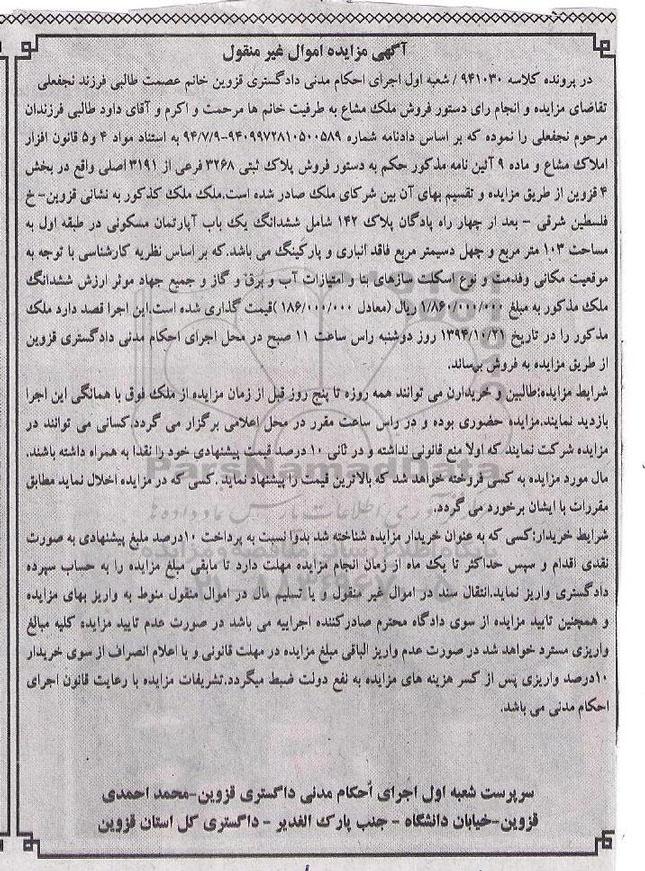 آگهی مزایده اموال غیر منقول
در پرونده کلاسه ۹۴۱۰۳۰ / شعبه اول اجرای احکام مدنی دادگستری قزوین خانم عصمت طالبی فرزند نجفعلی
تقاضای مزایده و انجام رای دستور فروش ملک مشاع به طرفیت خانم ها مرحمت و اکرم و آقای داود طالبی فرزندان
مرحوم نجفعلی را نموده که بر اساس دادنامه شماره ۹۴۰۹۹۷۲۸۱۰۵۰۰۵۸۹-۹۴/۷/۹ به استناد مواد ۴ و۵ قانون افراز
املاک مشاع و ماده ۹ آئین نامه مذکور حکم به دستور فروش پلاک ثبتی ۳۲۶۸ فرعی از ۳۱۹۱ اصلی واقع در بخش
۴ قزوین از طریق مزایده و تقسیم بهای آن بین شرکای ملک صادر شده است.ملک ملک کذکور به نشانی قزوین-خ
فلسطین شرقی - بعد ار چهار راه پادگان پلاک ۱۴۲ شامل ششدانگ یک باب آپارتمان مسکونی در طبقه اول به
مساحت ۱۰۳ متر مربع و چهل دسیمتر مربع فاقد انباری و پارکینگ می باشد.که بر اساس نظریه کارشناسی با توجه به
موقعیت مکانی وقدمت و نوع اسکلت سازهای بنا و امتیازات آب و برق و گاز و جمیع جهاد موثر ارزش ششدانگ
ملک مذکور به مبلغ ۱/۸۶۰/۰۰۰/۰۰۰ ریال (معادل ۱۸۶/۰۰۰/۰۰۰ )قیمت گذاری شده است.این اجرا قصد دارد ملک
مذکور را در تاریخ ۱۳۹۴/۱۰/۲۱ روز دوشنبه راس ساعت ۱۱ صبح در محل اجرای احکام مدنی دادگستری قزوین
از طریق مزایده به فروش برساند.
شرایط مزایده:طالبین و خریدارن می توانند همه روزه تا پنج روز قبل از زمان مزایده از ملک فوق با همانگی این اجرا
بازدید نمایند.مزایده حضوری بوده و در راس ساعت مقرر در محل اعلامی برگزار می گردد.کسانی می توانند در
مزایده شرکت نمایند که اولا منع قانونی نداشته و در ثانی ۱۰ درصد قیمت پیشنهادی خود را نقدا به همراه داشته باشند.
مال مورد مزایده به کسی فروخته خواهد شد که بالاترین قیمت را پیشنهاد نماید .کسی که در مزایده اخلال نماید مطابق
مقررات با ایشان برخورد می گردد.
شرایط خریدار:کسی که به عنوان خریدار مزایده شناخته شد بدوا نسبت به پرداخت ۱۰درصد ملبغ پیشنهادی به صورت
نقدی اقدام و سپس حداکثر تا یک ماه از زمان انجام مزایده مهلت دارد تا مابقی مبلغ مزایده را به حساب سپرده
دادگستری واریز نماید.انتقال سند در اموال غیر منقول و یا تسلیم مال در اموال منقول منوط به واریز بهای مزایده
و همچنین تایید مزایده از سوی دادگاه محترم صادرکننده اجراییه می باشد در صورت عدم تایید مزایده کلیه مبالغ
واریزی مسترد خواهد شد در صورت عدم واریز الباقی مبلغ مزایده در مهلت قانونی و یا اعلام انصراف از سوی خریدار
۱۰درصد واریزی پس از کسر هزینه های مزایده به نفع دولت ضبط میگردد.تشریفات مزایده با رعایت قانون اجرای
احکام مدنی می باشد.
سرپرست شعبه اول اجرای أحکام مدنی داگستری قزوین-محمد احمدی
قزوین-خیابان دانشگاه - جنب پارک الغدیر - داگستری کل استان قزوین
ParsNamadData